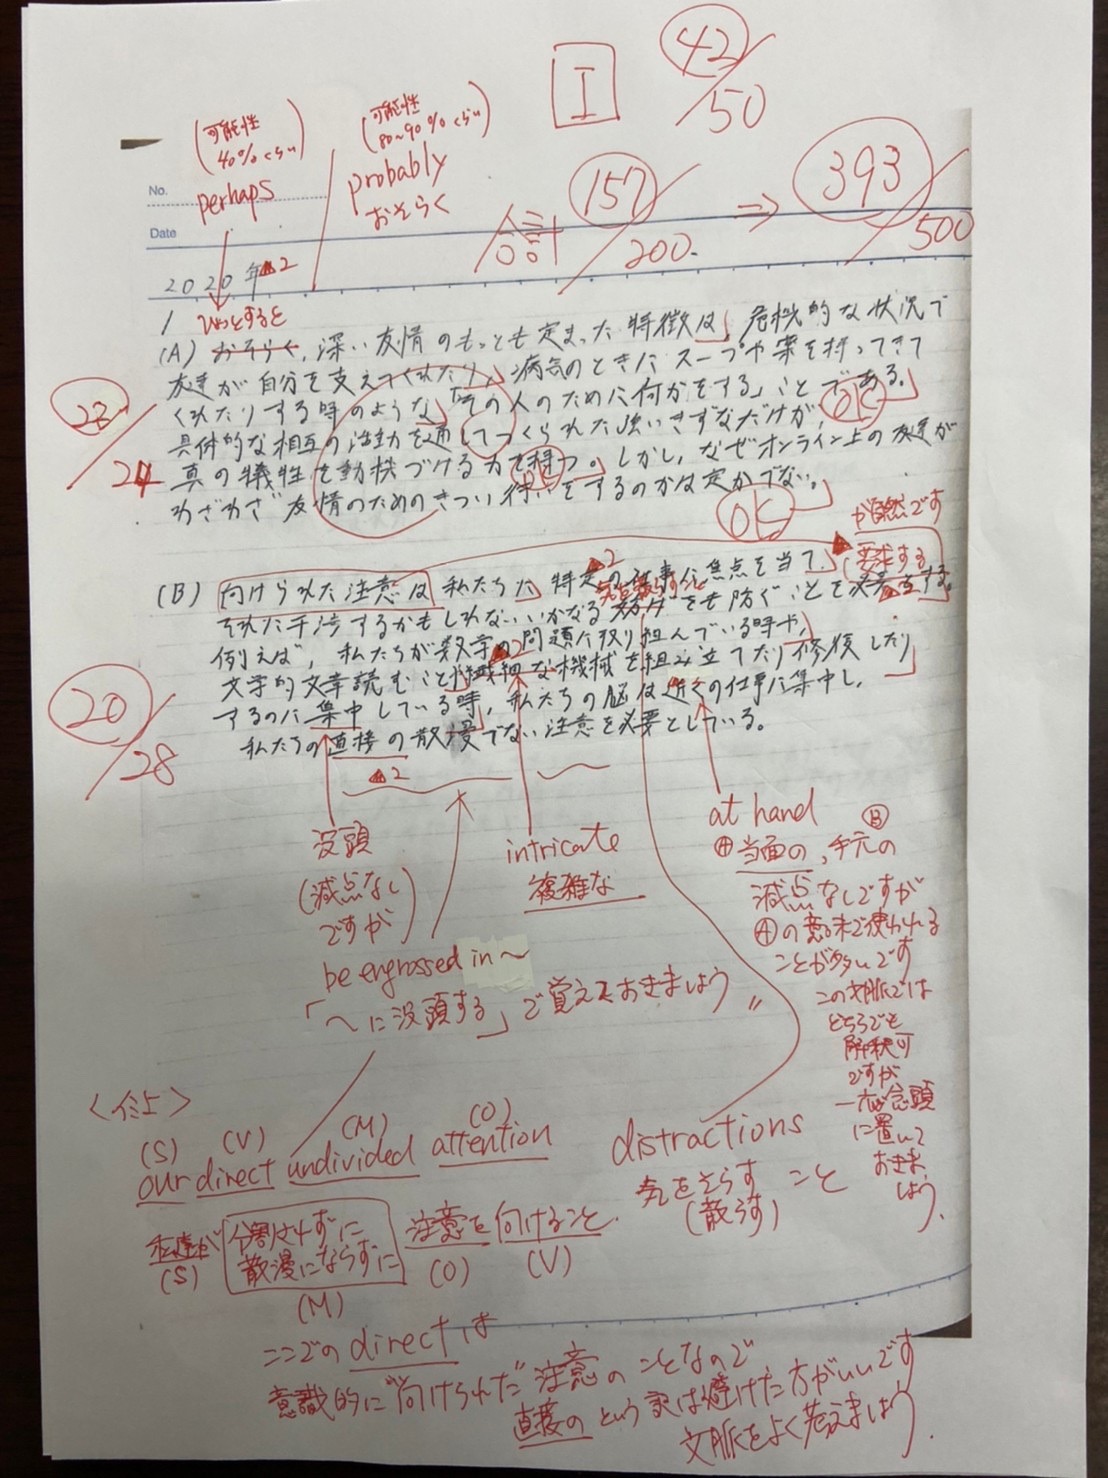 I
42/50
(可能性 40%くらい)
perhaps
(可能性 80~90%くらい)
probably
おそらく
合計 157/200. ⇒ 393/500
No.
Date
2020年 ▲2
1 ひょっとすると
(A) おそらく, 深い友情のもっとも定まった特徴は, 危機的な状況で
友達が自分を支えてくれたり, 病気のときにスープや薬を持ってきて
くれたりする時のような「その人のために何かをする」ことである。
OK
具体的な相互の活動を通してつくられた強いきずなだけが,
真の犠牲を動機づける力を持つ。しかし, なぜオンライン上の友達が
OK
わざわざ友情のためのきつい行いをするのかは定かでない。
OK
23/24
が自然です
(B) 向けられた注意は私たちに特定の仕事に焦点を当て, (要求する
▲2
それに干渉するかもしれないいかなる妨げをも防ぐことを必要とする。
例えば, 私たちが数学の問題に取り組んでいる時や,
文学的文章読むこと, 繊細な機械を組み立てたり修復したり
▲2
するのに集中している時, 私たちの脳は近くの仕事に集中し,
私たちの直接の散漫でない注意を必要としている。
▲2
20/28
没頭
(減点なしですが)
be engrossed in ~
「~に没頭する」で覚えておきましょう
intricate
複雑な
at hand
Ⓐ当面の, Ⓑ手元の
減点なしですが
Ⓐの意味で使われる
ことが多いです
この文脈では
どちらでも
解釈可
ですが
一応念頭
に置いて
おきま
しょう.
distractions
気をそらす こと
(散らす)
(S) (V) (M) (O)
our direct undivided attention
私達が 分割せずに 散漫にならずに 注意を向けること.
(S) (M) (O) (V)
ここでの direct は
意識的に"向けられた"注意のことなので
直接の という訳は避けた方がいいです
文脈をよく考えましょう.